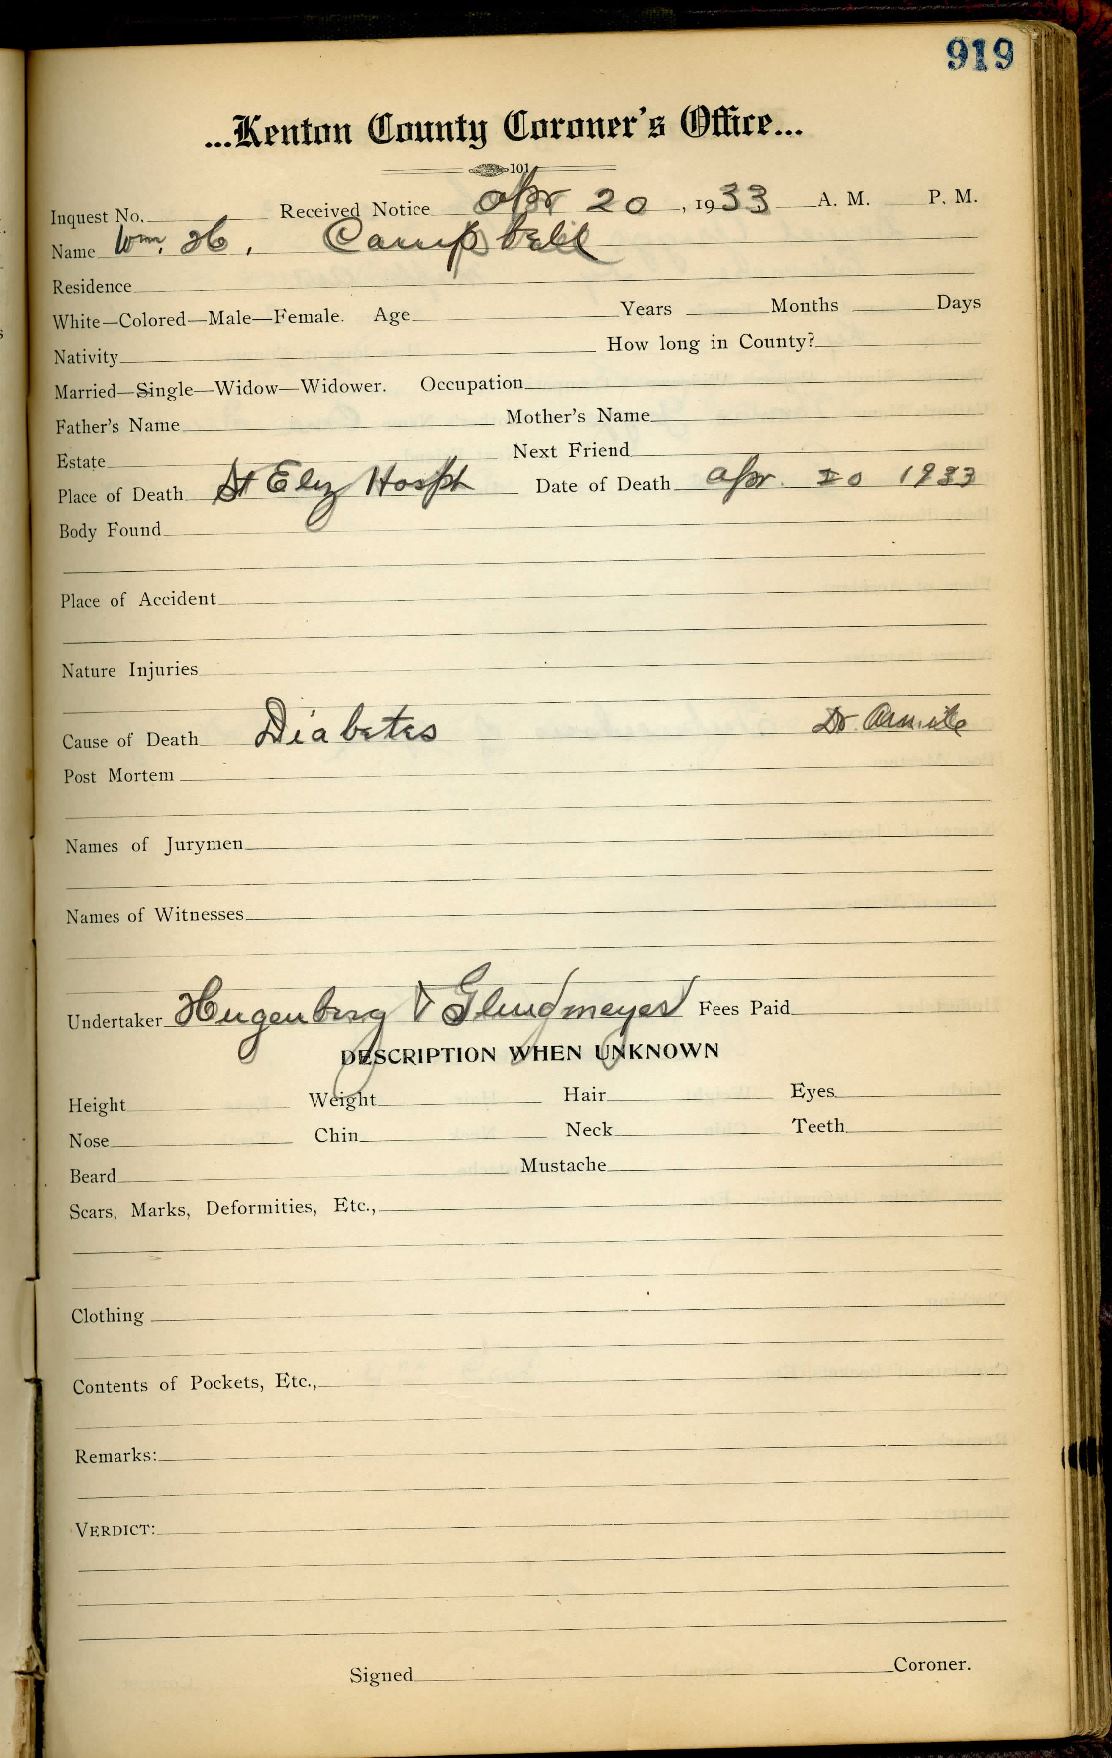 919
...Kenton County Coroner's Office...
101
Inquest No. Received Notice Apr 20, 1933 A. M. P. M.
Name Wm. H. Campbell
Residence
White—Colored—Male—Female. Age Years Months Days
Nativity How long in County?
Married—Single—Widow—Widower. Occupation
Father's Name Mother's Name
Estate Next Friend
Place of Death St Eliz Hospt Date of Death Apr. 20 1933
Body Found
Place of Accident
Nature Injuries
Cause of Death Diabetes Dr.
Post Mortem
Names of Jurymen
Names of Witnesses
Undertaker Hugenberg & Glindmeyer Fees Paid
DESCRIPTION WHEN UNKNOWN
Height Weight Hair Eyes
Nose Chin Neck Teeth
Beard Mustache
Scars, Marks, Deformities, Etc.,
Clothing
Contents of Pockets, Etc.,
Remarks:
VERDICT:
Signed Coroner.